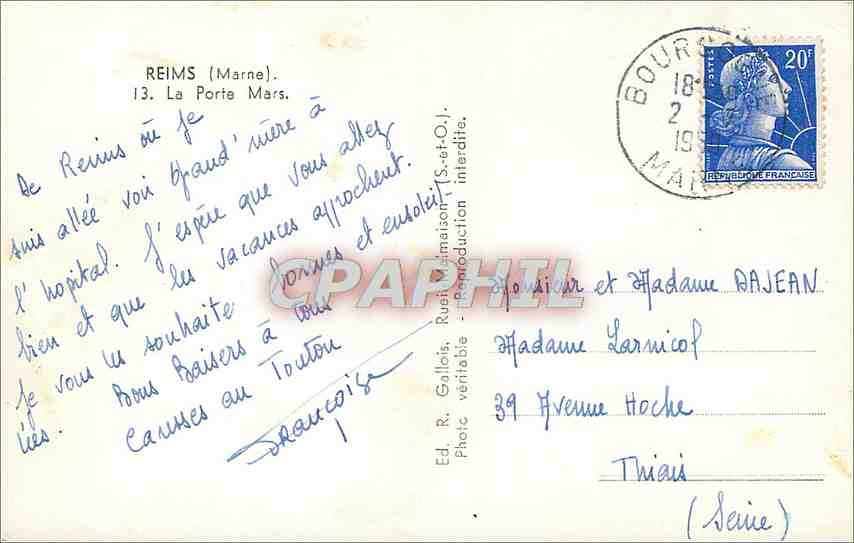 REIMS (Marne).
13. La Porte Mars.
de Reims où je
suis allée voir grand'mère à
l'hopital. J'espère que vous allez
bien et que les vacances approchent.
Je vous les souhaite bonnes et ensoleil-
lées. Bons Baisers à tous
Caresses au Toutou
FRANÇOISE
Ed. R. Gallois, Rueil-Malmaison (S.-et-O.).
Photo véritable - Reproduction interdite.
CPAPHIL
BOURGO
18
2
195
MAR
POSTES
20F
REPUBLIQUE FRANÇAISE
Monsieur et Madame DAJEAN
Madame Larnicol
39 Avenue Hoche
Thiais
(Seine)